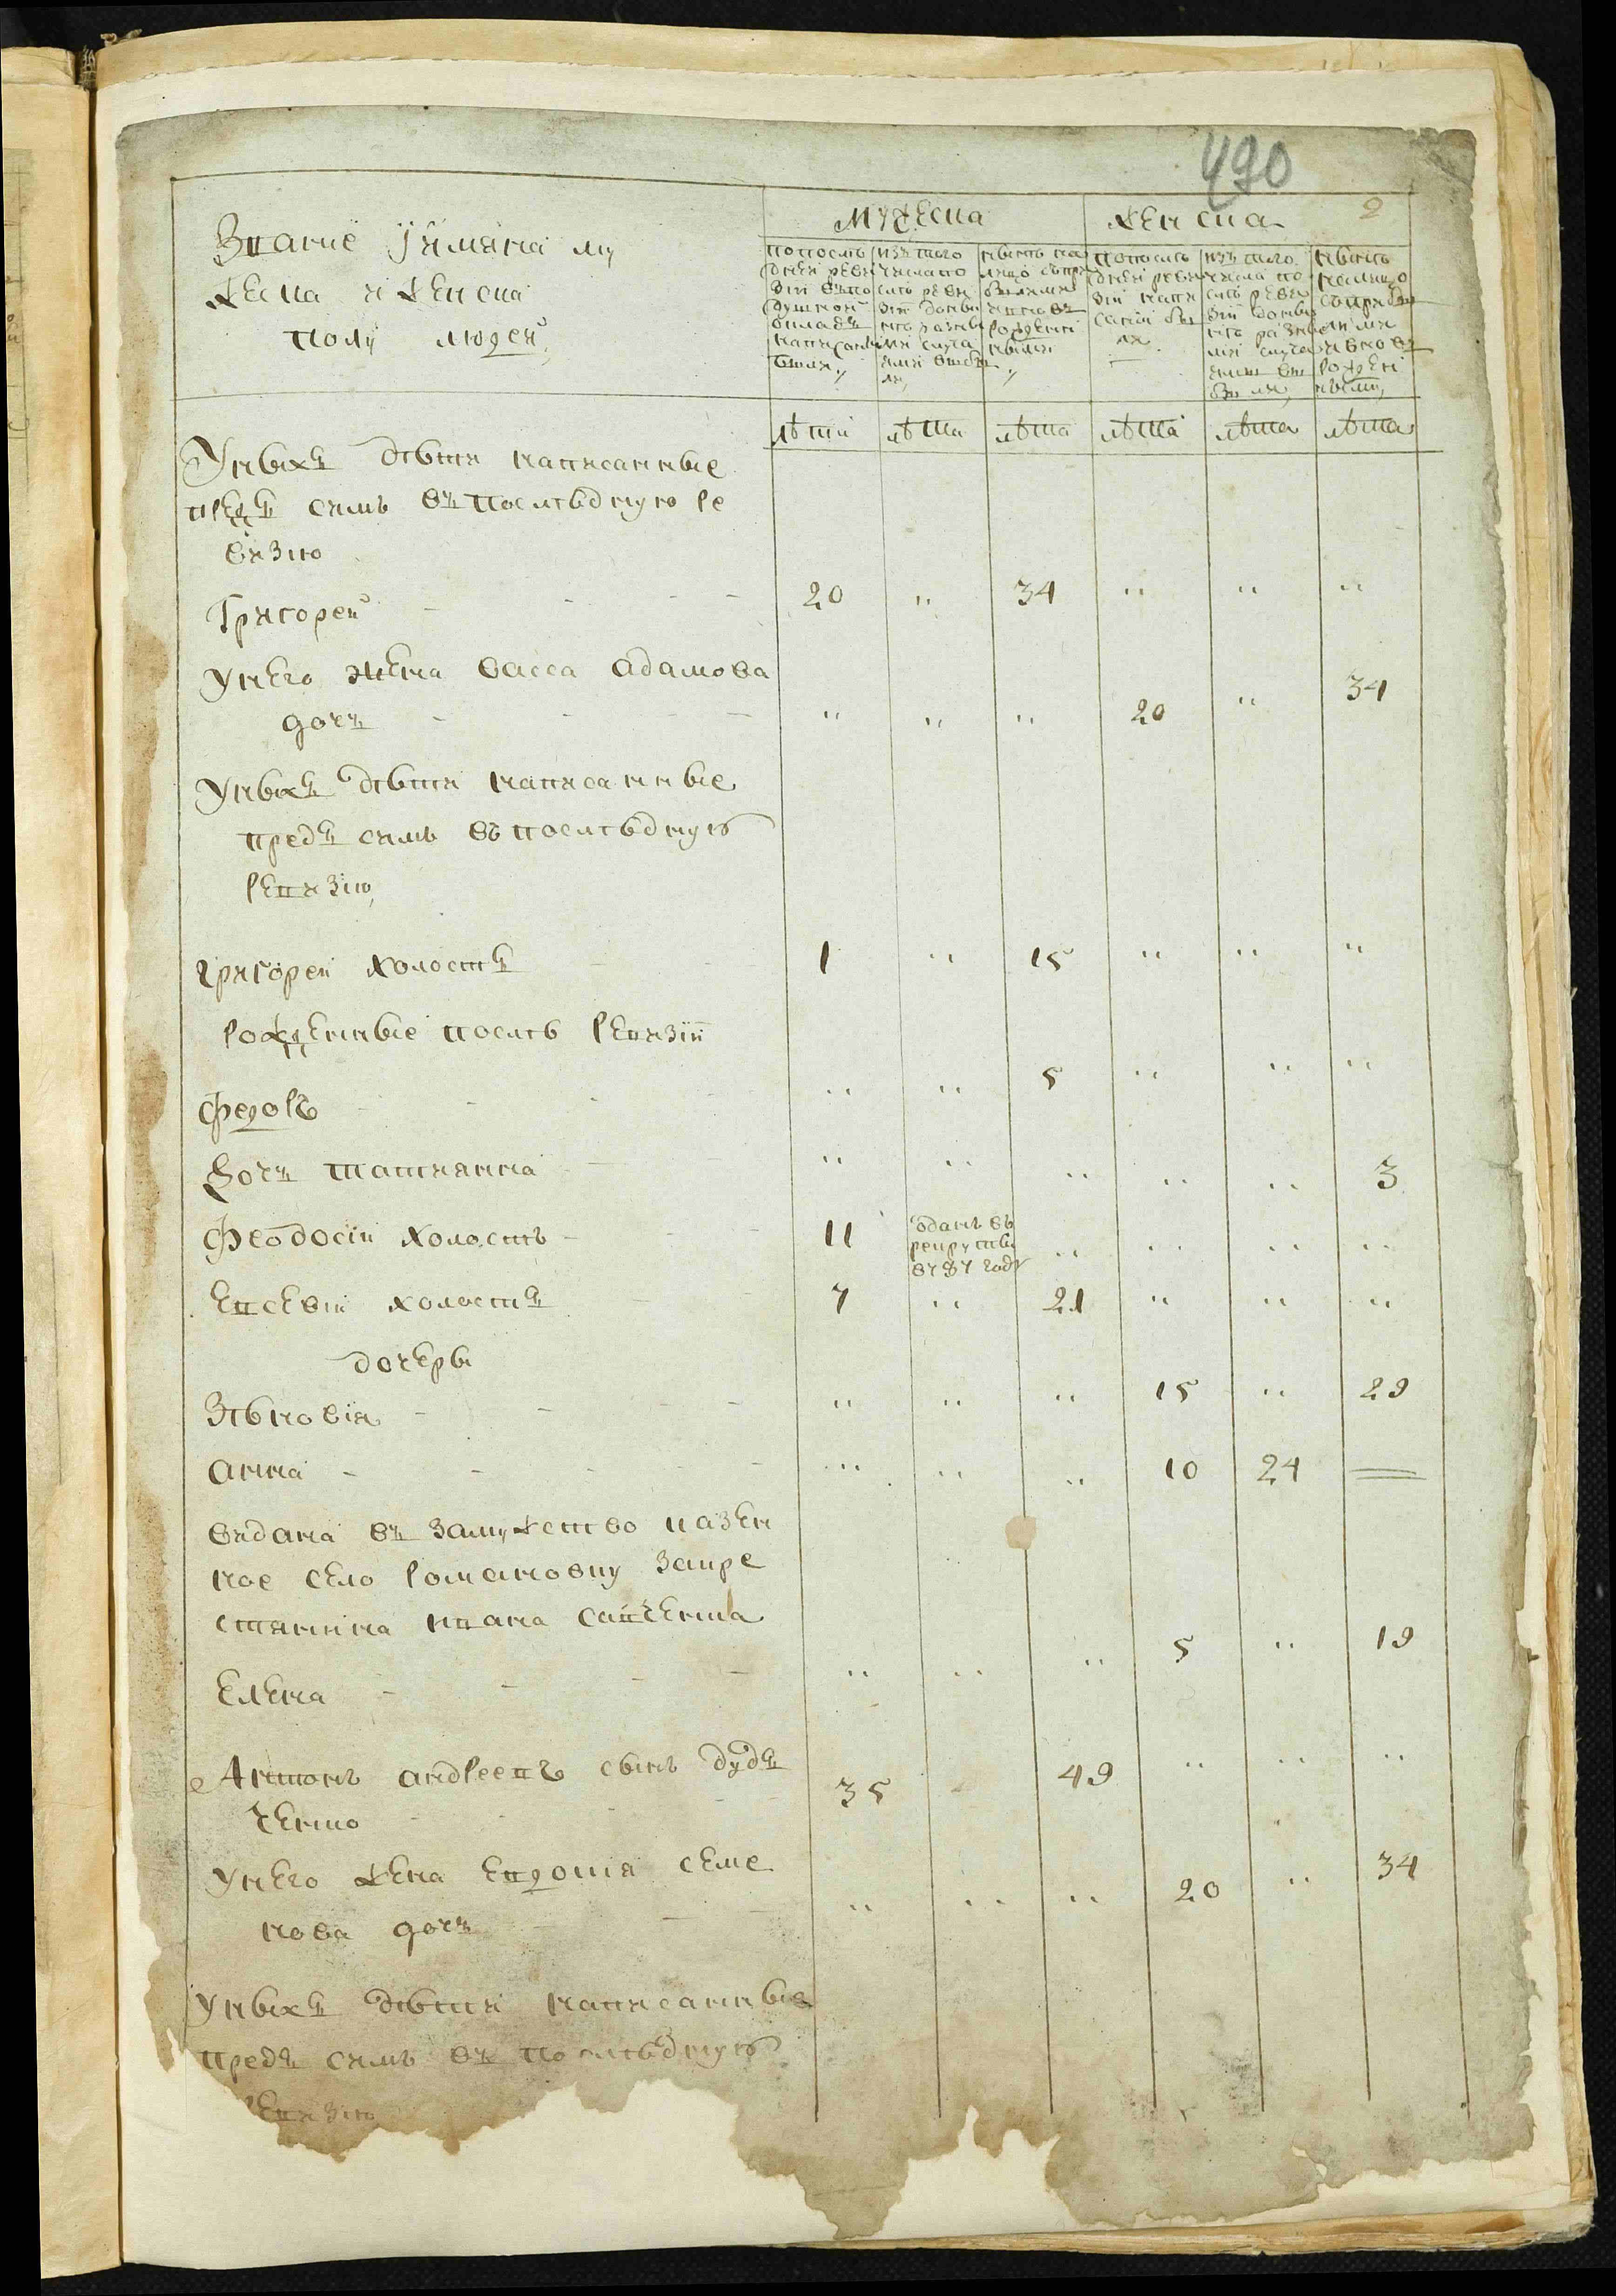 490
2
Званїе Їимяна му
жеска и женска
полу людей
Мужеска
женска
попослѣ дней ревизїи въ по душной окладъ написаны были
изъ того числа по слѣ ревизїи доныне разны ми случа ями выбы ли
нынѣ на лицо съ при былыми и вновь рожденны ми
попослѣ дней ревизїи напи саны бы ли
изъ того числа по слѣ ревизїи доныне разны ми случа ями вы были
нынѣ на лицо съ прибы лыми и вновь рожден ными
лѣта лѣта лѣта лѣта лѣта лѣта
У ныхъ дѣти написанные
предъ симъ въ последную ре
визию
Григорей - - - 20 " 34 " " "
У него жена васса адамова
дочь - - - " " " 20 " 34
У ныхъ дѣти написанные
предъ симъ въ последную
ревизию
григорей холостъ 1 " 15 " " "
рожденные послѣ ревизїи
федоръ - - - " " 5 " " "
дочь татиянна " " " " " 3
феодосїи холостъ - 11 оданъ въ рекруты в 787 году " " " "
евсевїи холостъ 7 " 21 " " "
дочеры
Зѣновїя - - - " " " 15 " 29
анна - - - " " " 10 24 =
видана въ замужство казен
ное село романовку за кре
стянина ивана савченка
елена - - - " " " 5 " 19
Антонъ андреевъ сынъ дуд
ченко - - - 35 - 49 " " "
У него жена евдокїя семе
нова дочь " " " 20 " 34
У ныхъ дѣти написанные
предъ симъ въ последную
ревизию